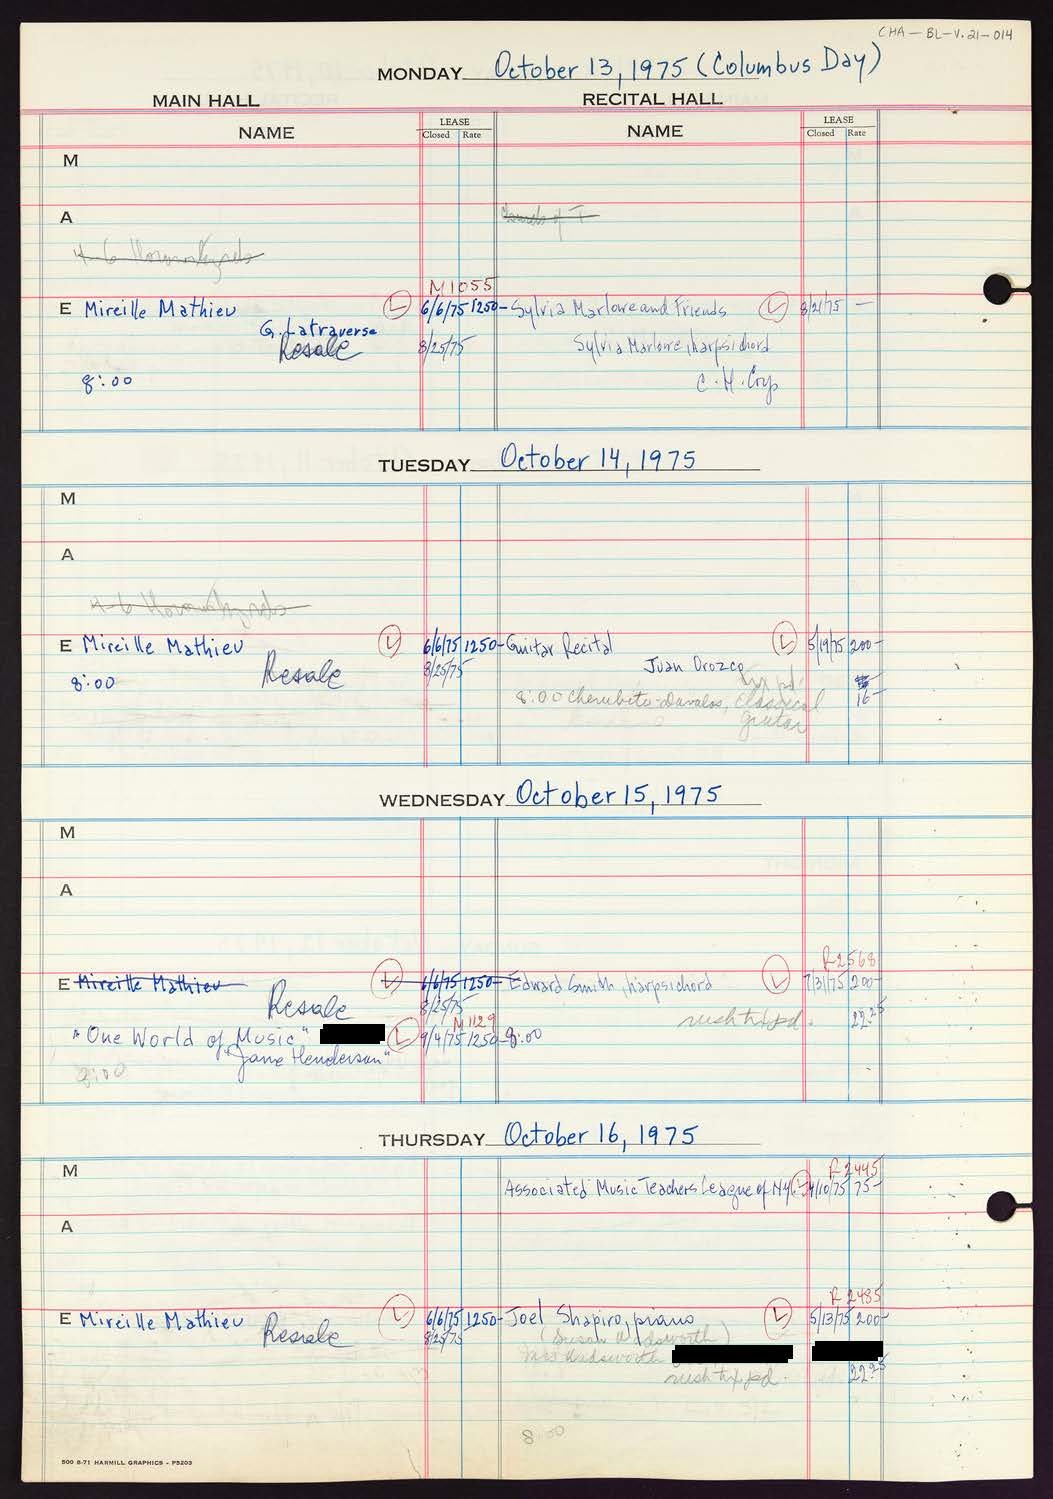 CHA-BL-V.21-014
MONDAY October 13, 1975 (Columbus Day)
MAIN HALL RECITAL HALL
NAME LEASE Closed Rate NAME LEASE Closed Rate
M
A
4-6
M1055
E Mireille Mathieu L 6/6/75 1250- Sylvia Marlowe and Friends L 8/21/75 —
G. Latraverse
Resale 8/25/75 Sylvia Marlowe, harpsichord
8:00 C.H. Corp
TUESDAY October 14, 1975
M
A
4-6
E Mireille Mathieu L 6/6/75 1250- Guitar Recital L 5/19/75 200-
Resale 8/25/75 Juan Orozco
8:00 16-
8:00 Cherubito-Davalos, classical
guitar
WEDNESDAY October 15, 1975
M
A
R2568
E Mireille Mathieu L 6/6/75 1250- Edward Smith, harpsichord L 7/31/75 200-
Resale 8/25/75
rush tx pd. 22.25
M1129
"One World of Music" L 9/4/75 1250- 8:00
"Jane Henderson"
8:00
THURSDAY October 16, 1975
M R2445
Associated Music Teachers League of NY L 4/10/75 75-
A
R2485
E Mireille Mathieu L 6/6/75 1250- Joel Shapiro, piano L 5/13/75 200-
Resale 8/25/75 (Susan Wadsworth)
Wadsworth
rush tx pd. 22.25
8:00
500 8-71 HARMILL GRAPHICS - P5203